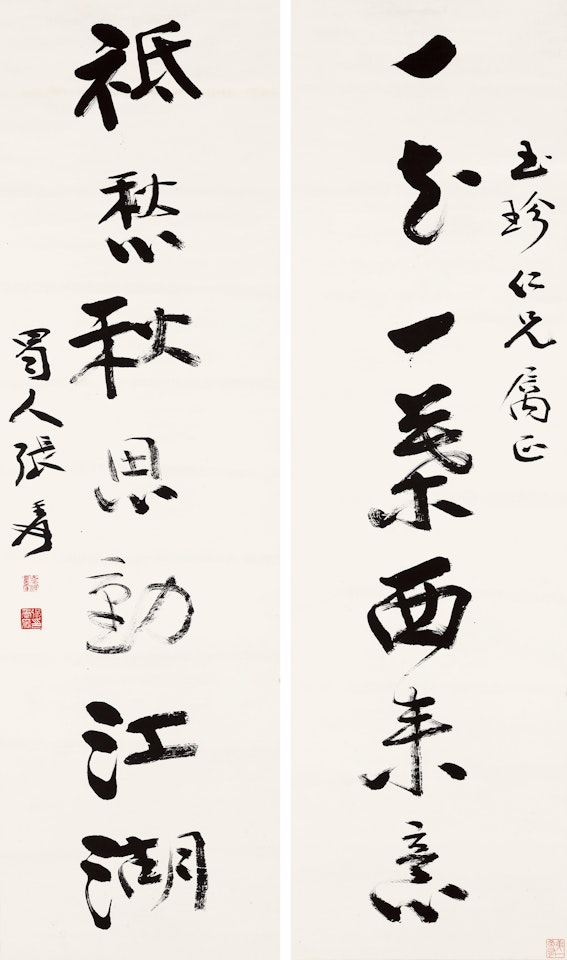 玉珍仁兄屬正
一花一葉西來意
祗愁秋思動江湖
蜀人張爰